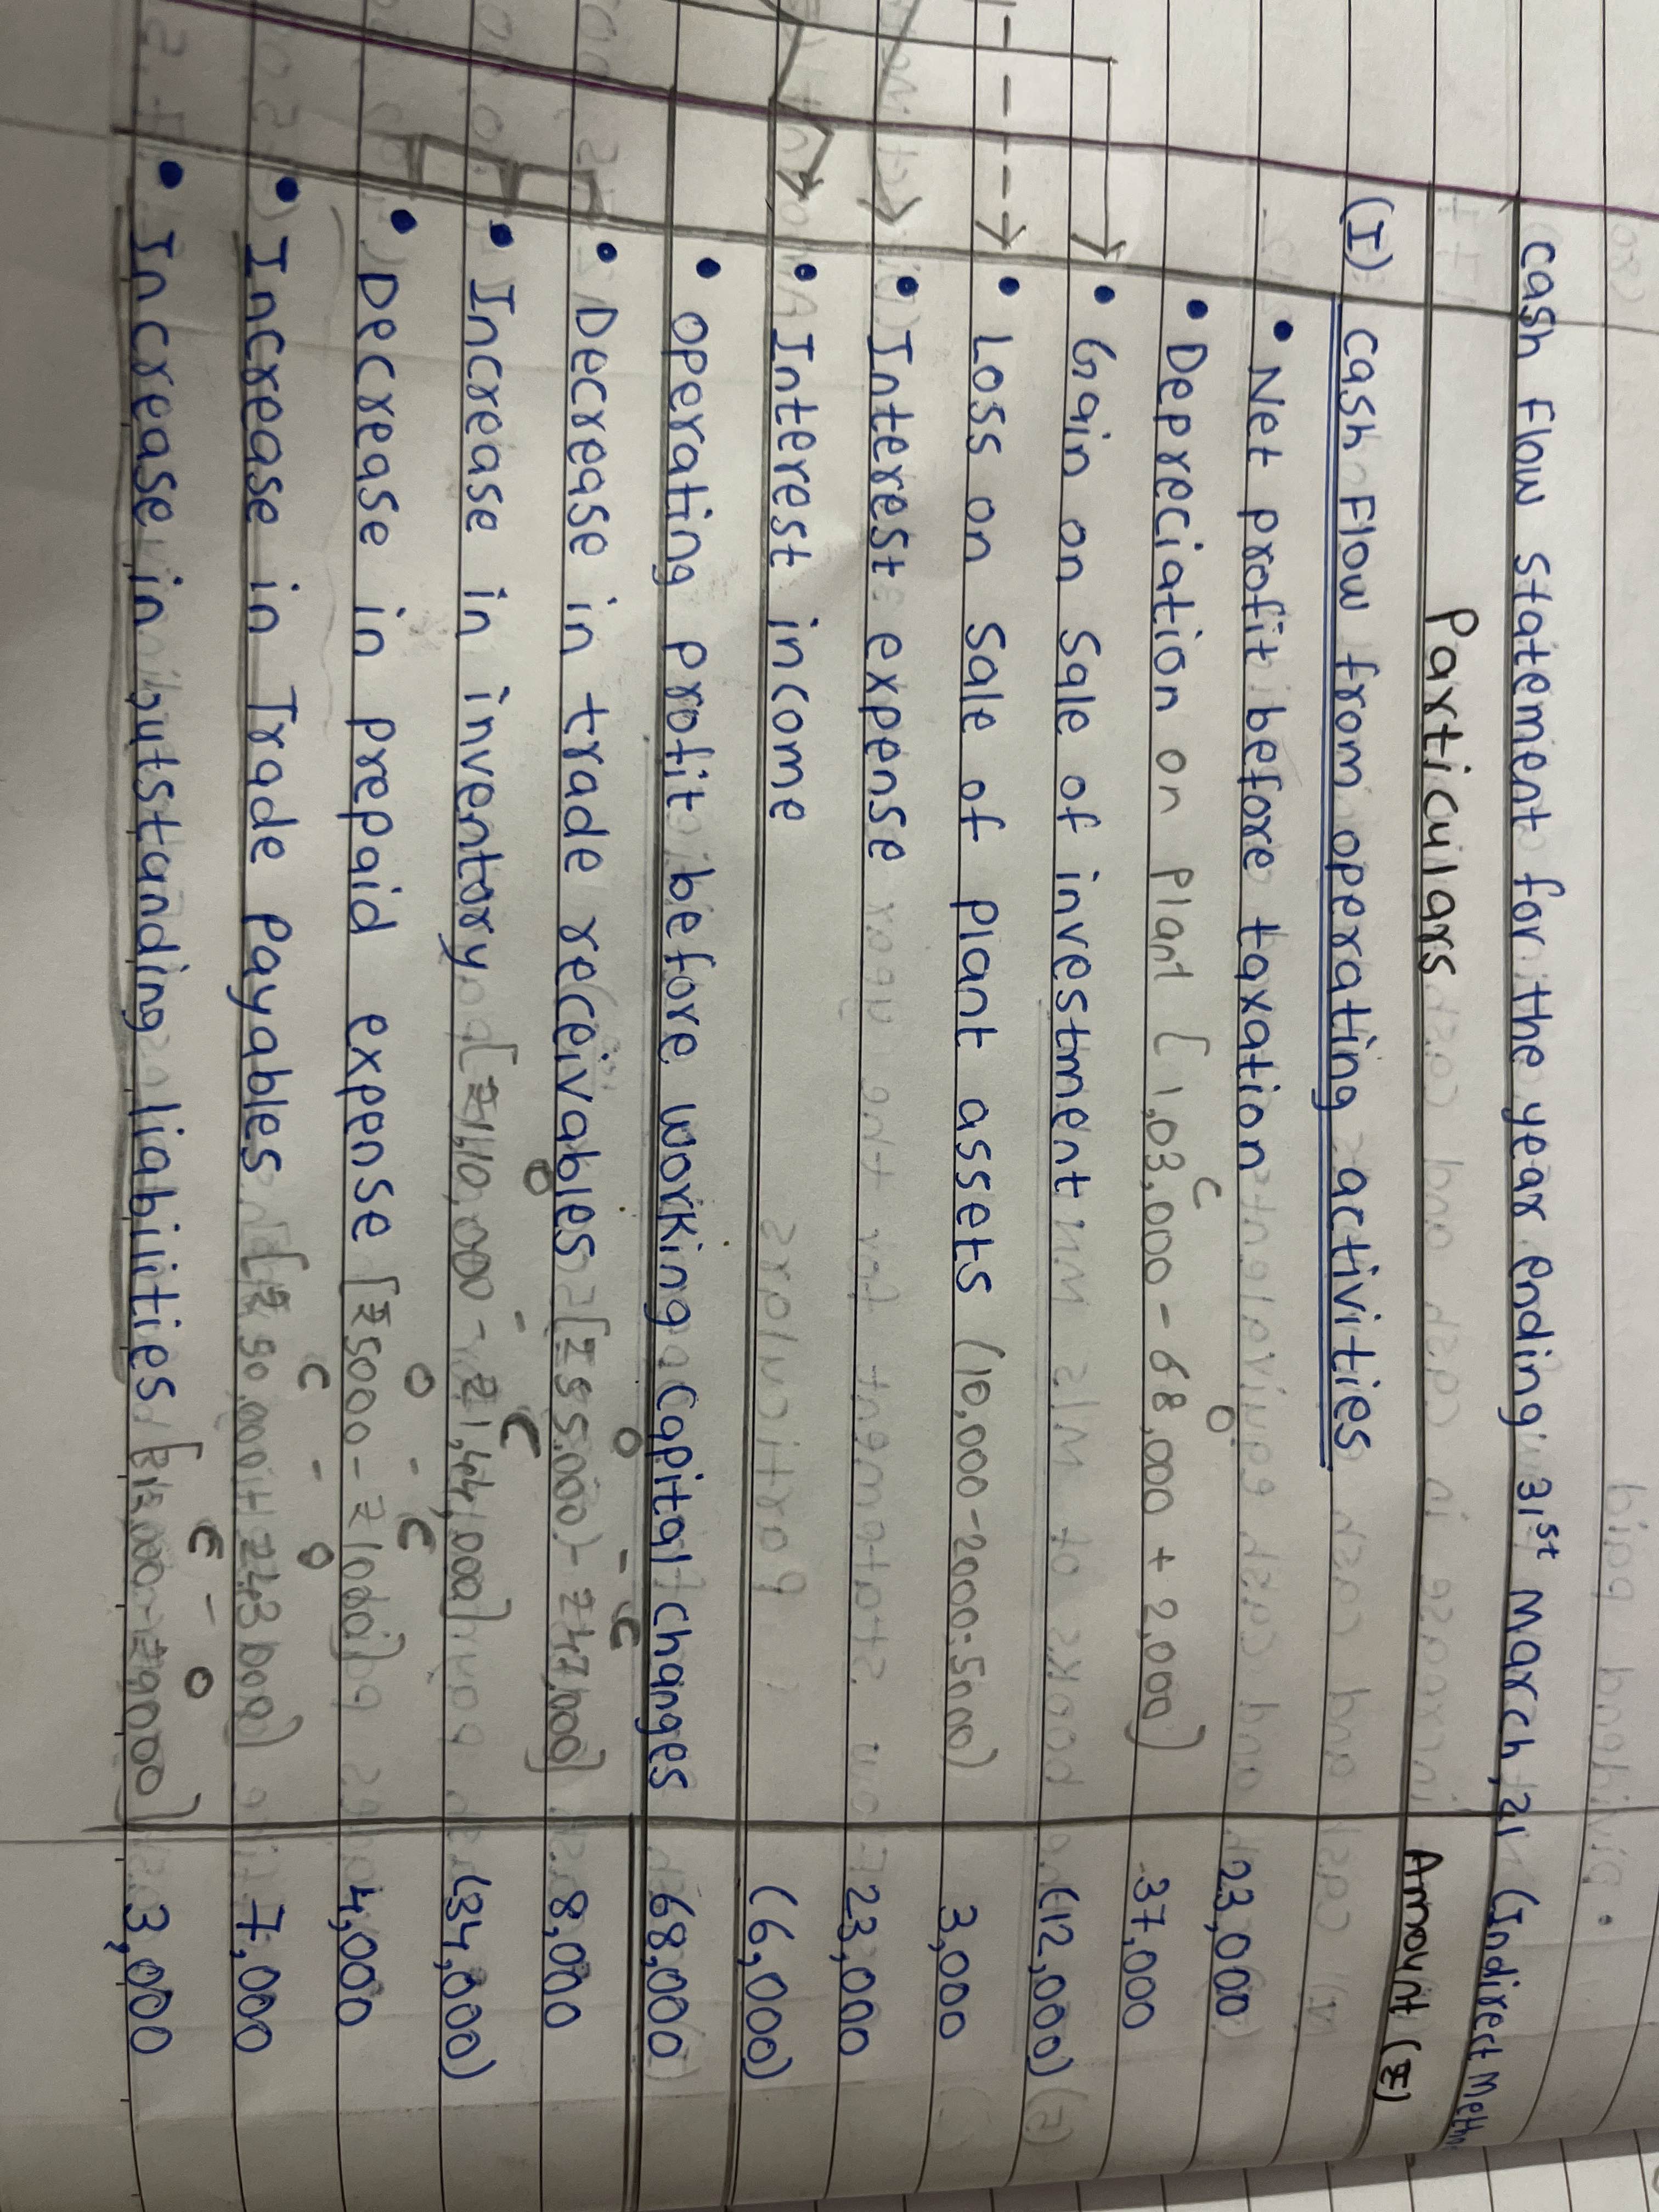 Cash Flow Statement for the year ending 31st March, 21 (Indirect Metho
Particulars Amount (₹)
(I) Cash Flow from operating activities
• Net profit before taxation 23,000
• Depreciation on plant [1,03,000 - 68,000 + 2,000] 37,000
C O
• Gain on sale of investment (12,000)
• Loss on sale of plant assets (10,000-2000-5000) 3,000
• Interest expense 23,000
• Interest income (6,000)
• Operating profit before working capital changes 68,000
O - C
• Decrease in trade receivables [₹55,000 - ₹47,000] 8,000
O - C
• Increase in inventory [₹1,10,000 - ₹1,44,000] (34,000)
O - C
• Decrease in prepaid expense [₹5000 - ₹1000] 4,000
C - O
• Increase in Trade Payables [₹50,000 - ₹43000] 7,000
C - O
• Increase in outstanding liabilities [₹12,000 - ₹9000] 3,000